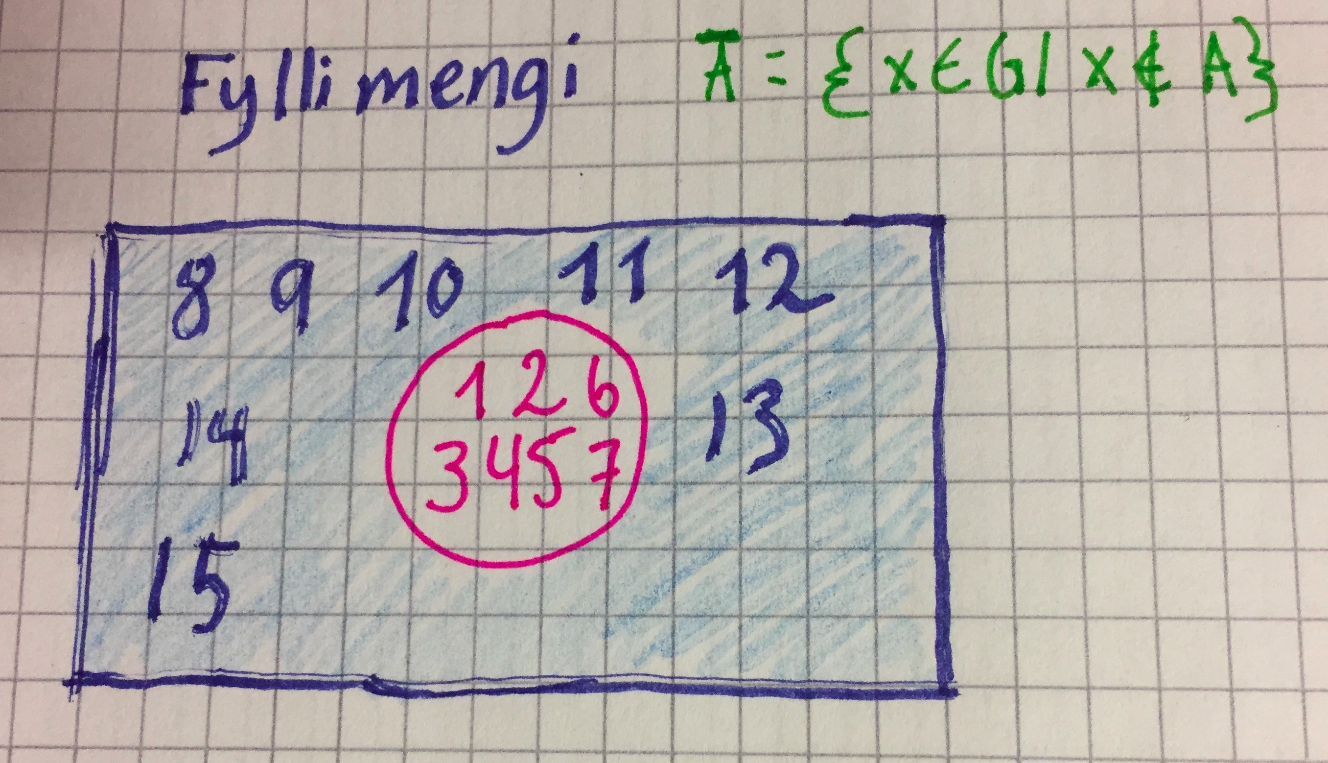 Fyllimengi A̅ = {x∈G| x∉A}
8 9 10 11 12
1 2 6
14 3 4 5 7 13
15